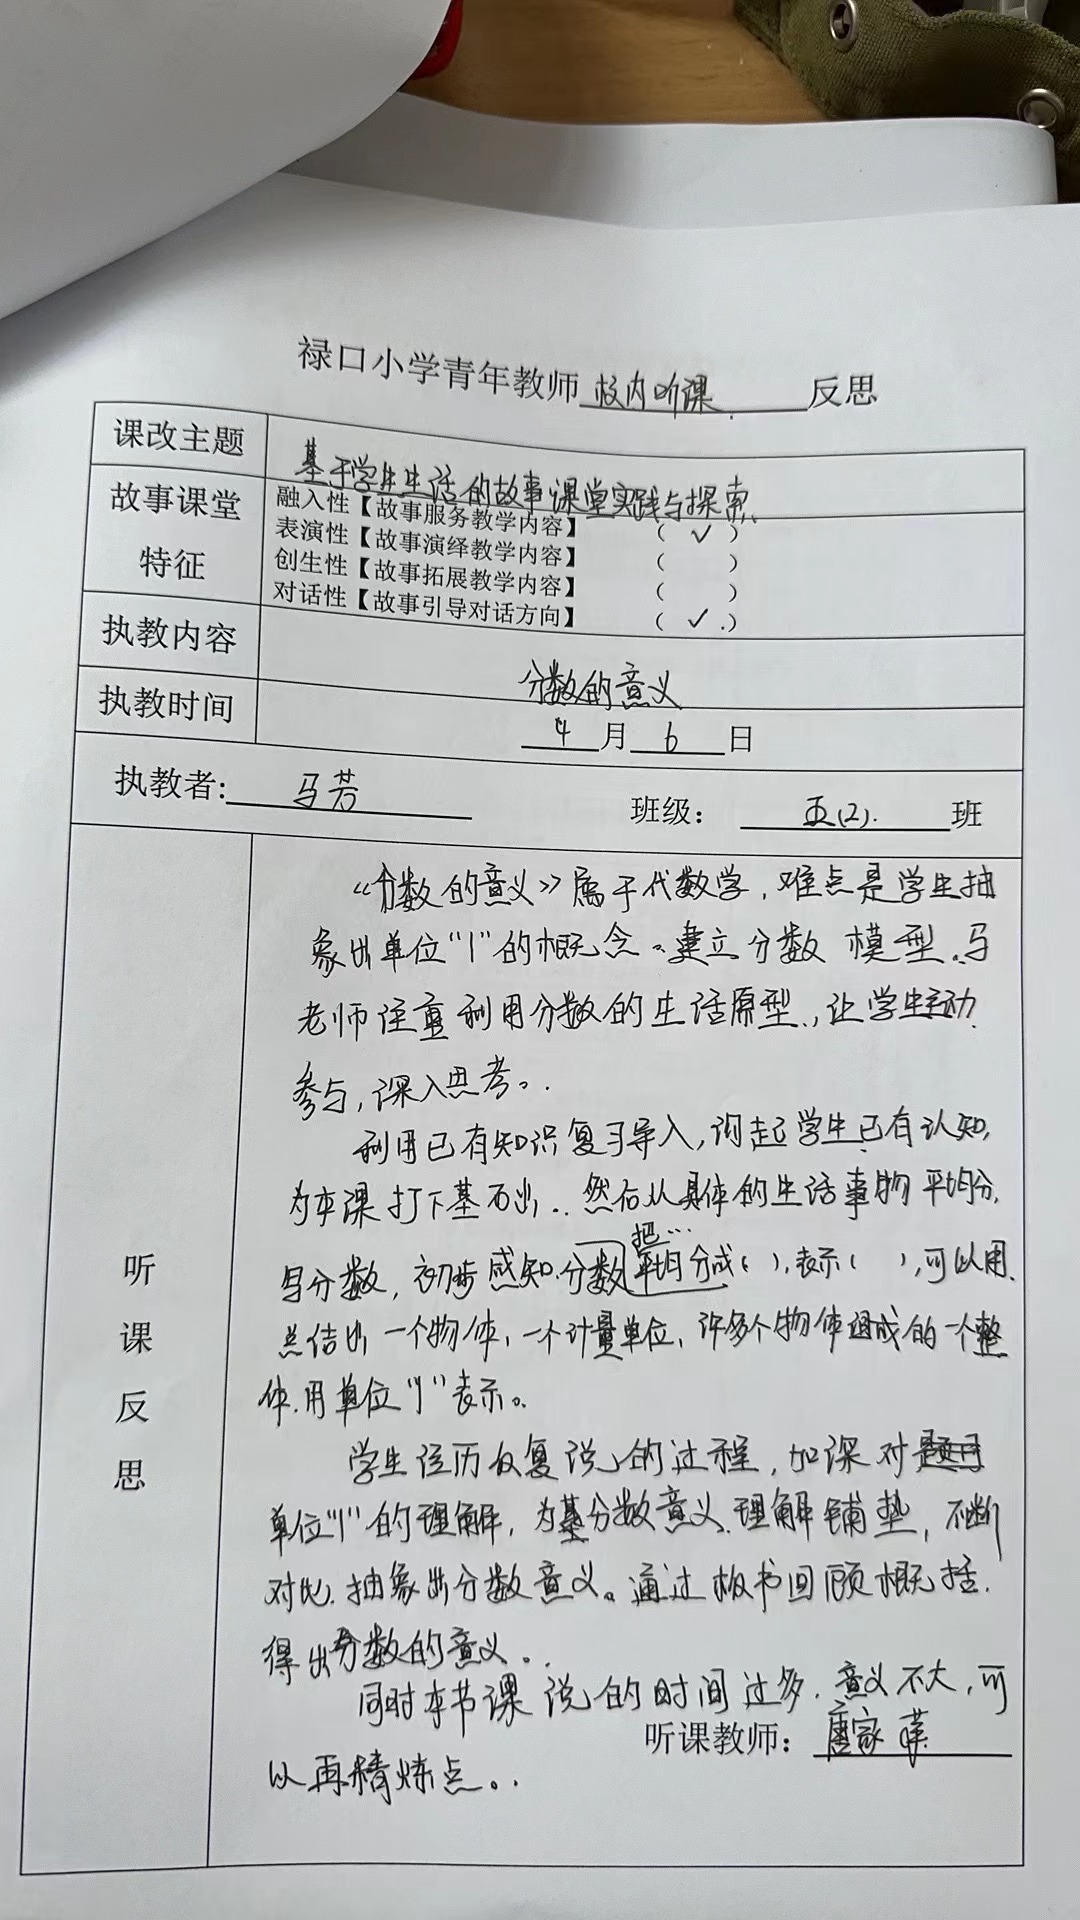 禄口小学青年教师 校内听课 反思
课改主题 基于学生生活的故事课堂实践与探索
故事课堂特征
融入性【故事服务教学内容】 （ ✓ ）
表演性【故事演绎教学内容】 （ ）
创生性【故事拓展教学内容】 （ ）
对话性【故事引导对话方向】 （ ✓ ）
执教内容 分数的意义
执教时间 4月6日
执教者: 马芳 班级： 五(2). 班
听课反思
《分数的意义》属于代数学，难点是学生抽
象出单位“1”的概念。建立分数模型.马
老师注重利用分数的生活原型，让学生主动
参与，深入思考。
利用已有知识复习导入，词起学生已有认知，
为本课打下基石出..然后从具体的生活事物平均分，
与分数，初步感知.分数 把… 平均分成( ),表示( ),可以用
总结出一个物体，一个计量单位，许多个物体组成的一个整
体.用单位“1”表示。
学生经历反复说的过程，加深对题目
单位“1”的理解，为基分数意义.理解铺垫，不断
对比.抽象出分数意义。通过板书回顾概括.
得出分数的意义..
同时本节课说的时间过多.意义不大，可
听课教师： 唐家
以再精炼点。.